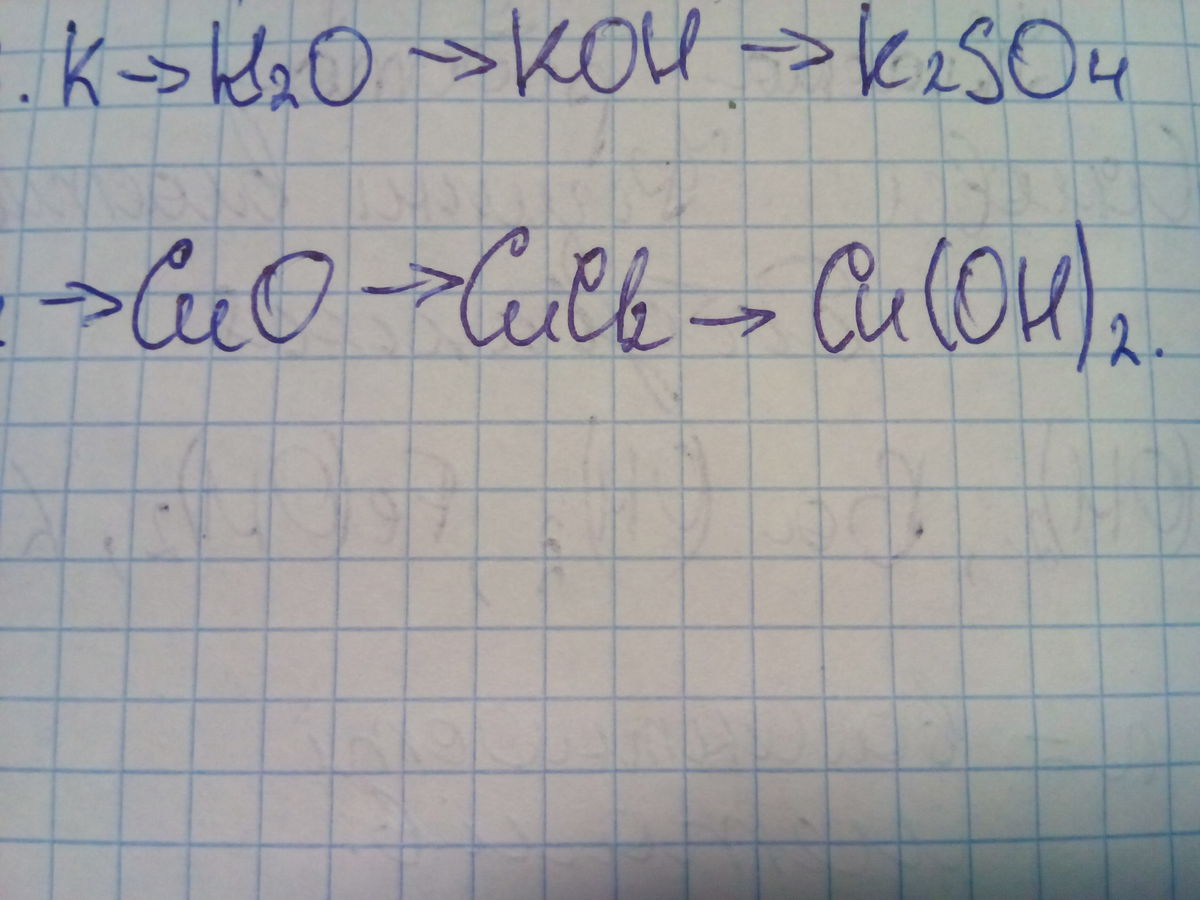 . K → H2O → KOH → K2SO4
→ CuO → CuCl2 → Cu(OH)2.